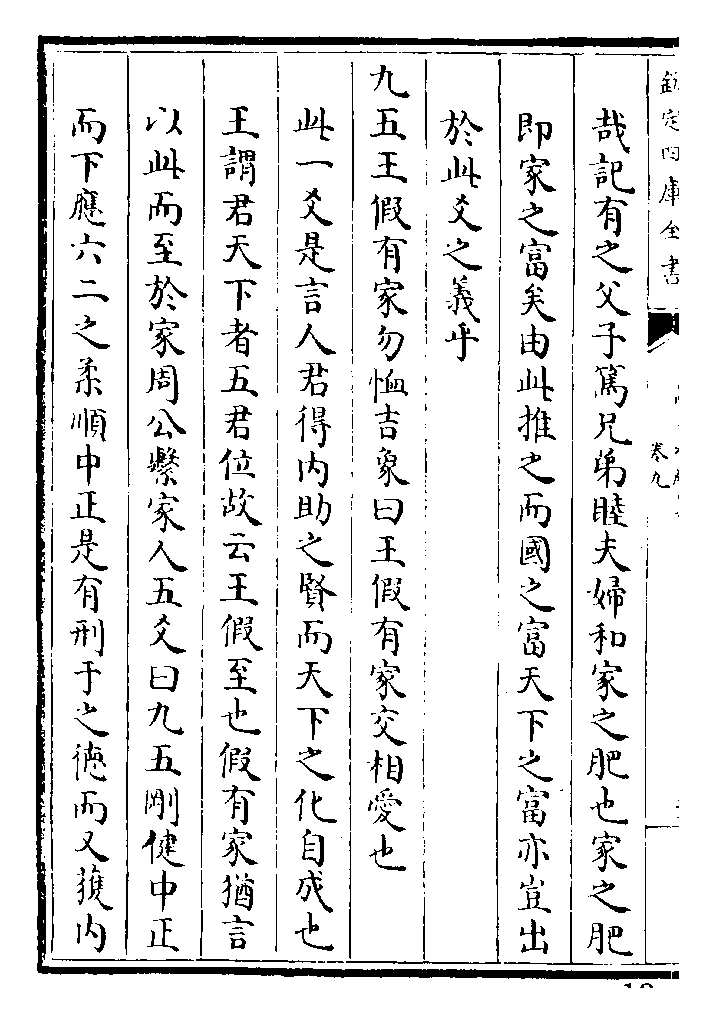 欽定四庫全書
卷九
哉記有之父子篤兄弟睦夫婦和家之肥也家之肥
即家之富矣由此推之而國之富天下之富亦豈出
於此爻之義乎
九五王假有家勿恤吉象曰王假有家交相愛也
此一爻是言人君得内助之賢而天下之化自成也
王謂君天下者五君位故云王假至也假有家猶言
以此而至於家周公繫家人五爻曰九五剛健中正
而下應六二之柔順中正是有刑于之徳而又獲内